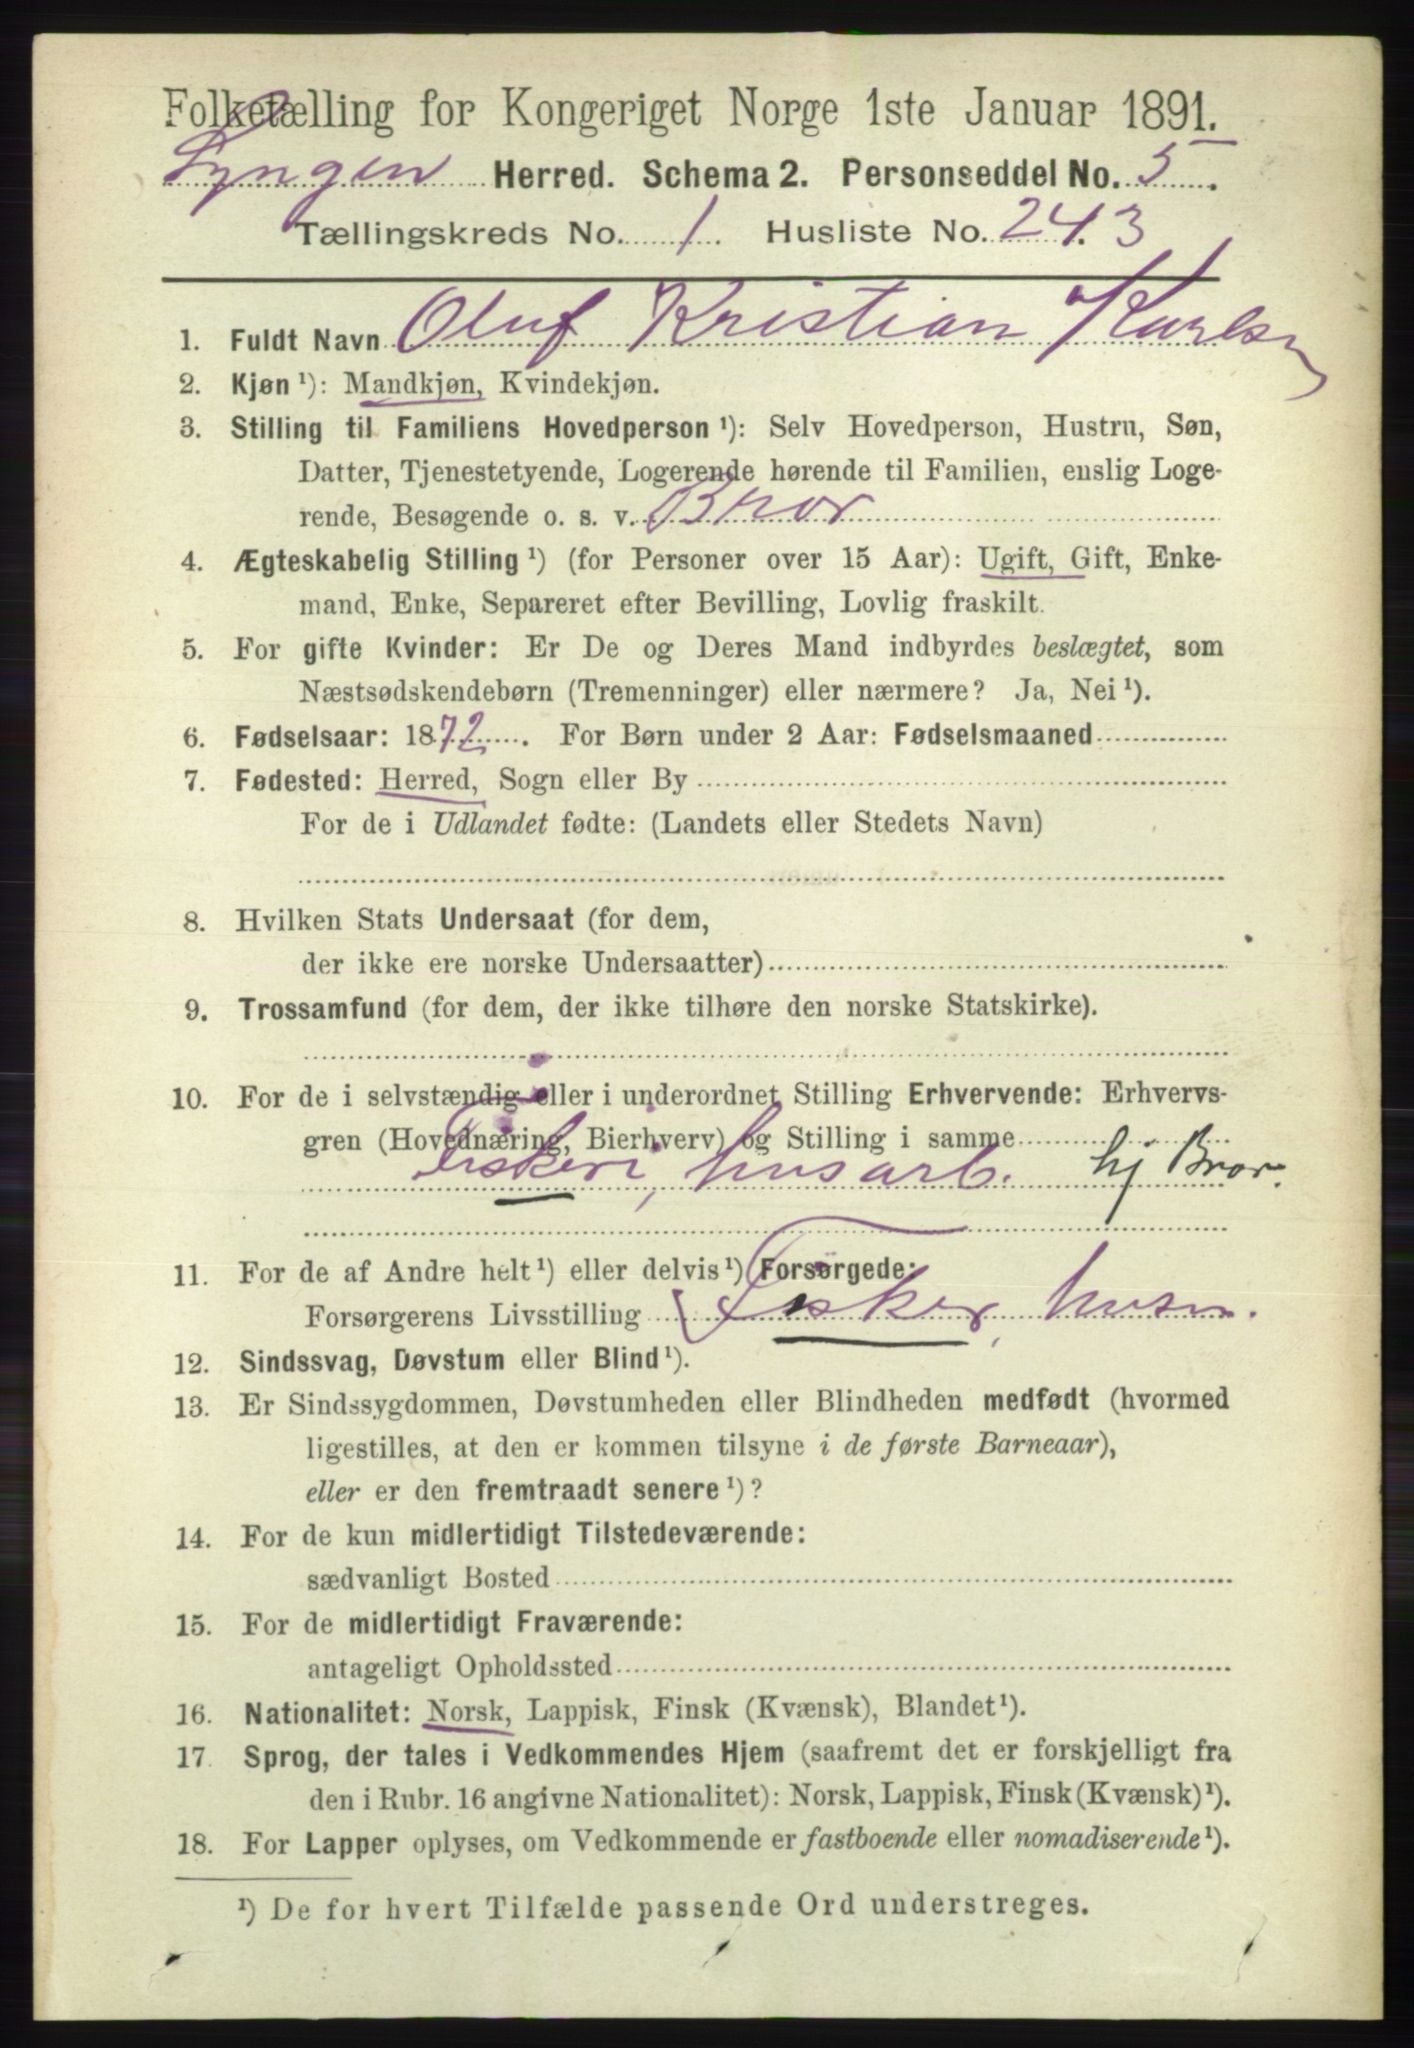 Folketælling for Kongeriget Norge 1ste Januar 1891.
Lyngen Herred. Schema 2. Personseddel No. 5.
Tællingskreds No. 1. Husliste No. 243
1. Fuldt Navn Oluf Kristian Karlsen
2. Kjøn ¹): Mandkjøn, Kvindekjøn.
3. Stilling til Familiens Hovedperson ¹): Selv Hovedperson, Hustru, Søn,
Datter, Tjenestetyende, Logerende hørende til Familien, enslig Loge-
rende, Besøgende o. s. v. Bror
4. Ægteskabelig Stilling ¹) (for Personer over 15 Aar): Ugift, Gift, Enke-
mand, Enke, Separeret efter Bevilling, Lovlig fraskilt.
5. For gifte Kvinder: Er De og Deres Mand indbyrdes beslægtet, som
Næstsødskendebørn (Tremenninger) eller nærmere? Ja, Nei ¹).
6. Fødselsaar: 1872. For Børn under 2 Aar: Fødselsmaaned
7. Fødested: Herred, Sogn eller By
For de i Udlandet fødte: (Landets eller Stedets Navn)
8. Hvilken Stats Undersaat (for dem,
der ikke ere norske Undersaatter)
9. Trossamfund (for dem, der ikke tilhøre den norske Statskirke).
10. For de i selvstændig eller i underordnet Stilling Erhvervende: Erhvervs-
gren (Hovednæring, Bierhverv) og Stilling i samme
Fiskeri, husarb. hj Bror.
11. For de af Andre helt ¹) eller delvis ¹) Forsørgede:
Forsørgerens Livsstilling (Fisker, husm.
12. Sindssvag, Døvstum eller Blind ¹).
13. Er Sindssygdommen, Døvstumheden eller Blindheden medfødt (hvormed
ligestilles, at den er kommen tilsyne i de første Barneaar),
eller er den fremtraadt senere ¹)?
14. For de kun midlertidigt Tilstedeværende:
sædvanligt Bosted
15. For de midlertidigt Fraværende:
antageligt Opholdssted
16. Nationalitet: Norsk, Lappisk, Finsk (Kvænsk), Blandet ¹).
17. Sprog, der tales i Vedkommendes Hjem (saafremt det er forskjelligt fra
den i Rubr. 16 angivne Nationalitet): Norsk, Lappisk, Finsk (Kvænsk) ¹).
18. For Lapper oplyses, om Vedkommende er fastboende eller nomadiserende ¹).
¹) De for hvert Tilfælde passende Ord understreges.